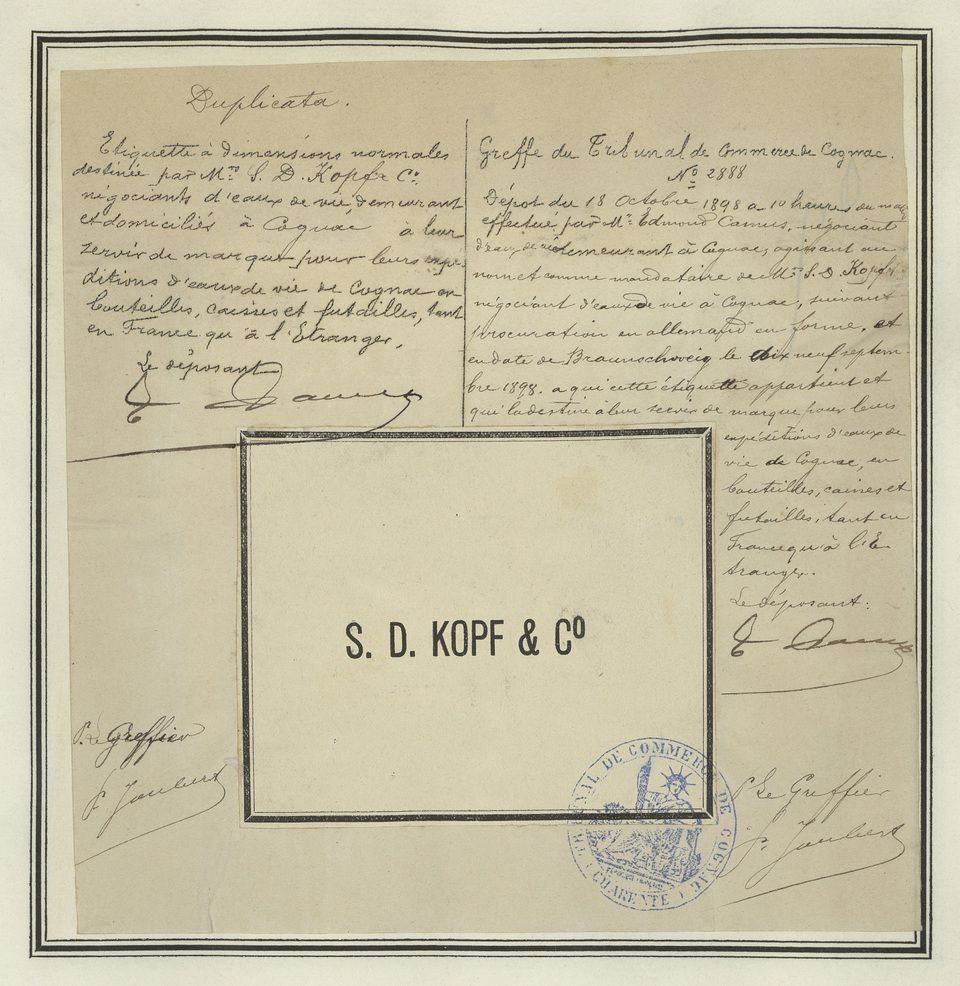 Duplicata.
Etiquette à dimensions normales
destinée par M.rs S. D. Kopf & Co.
négociants d'eaux de vie, demeurant
et domiciliés à Cognac à leur
servir de marque pour leurs expé-
ditions d'eaux de vie de Cognac en
bouteilles, caisses et futailles, tant
en France qu'à l'Etranger.
Le déposant
E Camus
P. Le Greffier
P. Joubert
Greffe du Tribunal de Commerce de Cognac.
No 2888
Dépôt du 18 Octobre 1898 à 10 heures du matin
effectué par Mr. Edmond Camus, négociant
d'eaux de vie demeurant à Cognac, agissant au
nom et comme mandataire de M.rs S. D. Kopf &
négociant d'eaux de vie à Cognac, suivant
procuration en allemand en forme, et
en date de Braunschweig le dix neuf septem-
bre 1898. a qui cette étiquette appartient et
qui la destine à leur servir de marque pour leurs
expéditions d'eaux de
vie de Cognac, en
bouteilles, caisses et
futailles, tant en
France qu'à l'E
tranger.
Le déposant:
E Camus
P Le Greffier
P. Joubert
S. D. KOPF & Co
TRIBUNAL DE COMMERCE DE COGNAC
(CHARENTE)